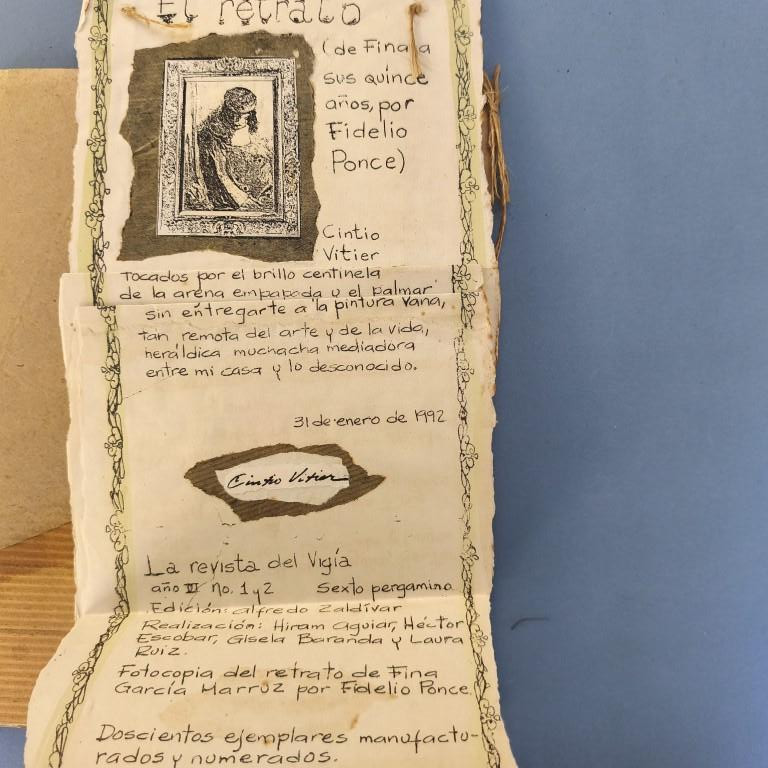 El retrato
(de Fina a
sus quince
años, por
Fidelio
Ponce)
Cintio
Vitier
Tocados por el brillo centinela
de la arena empapada y el palmar
sin entregarte a la pintura vana,
tan remota del arte y de la vida,
heráldica muchacha mediadora
entre mi casa y lo desconocido.
31 de enero de 1992
Cintio Vitier
La revista del Vigía
año III No. 1 y 2 Sexto pergamino
Edición: alfredo Zaldívar
Realización: Hiram aguiar, Héctor
Escobar, Gisela Baranda y Laura
Ruiz.
Fotocopia del retrato de Fina
García Marruz por Fidelio Ponce
Doscientos ejemplares manufactu-
rados y numerados.